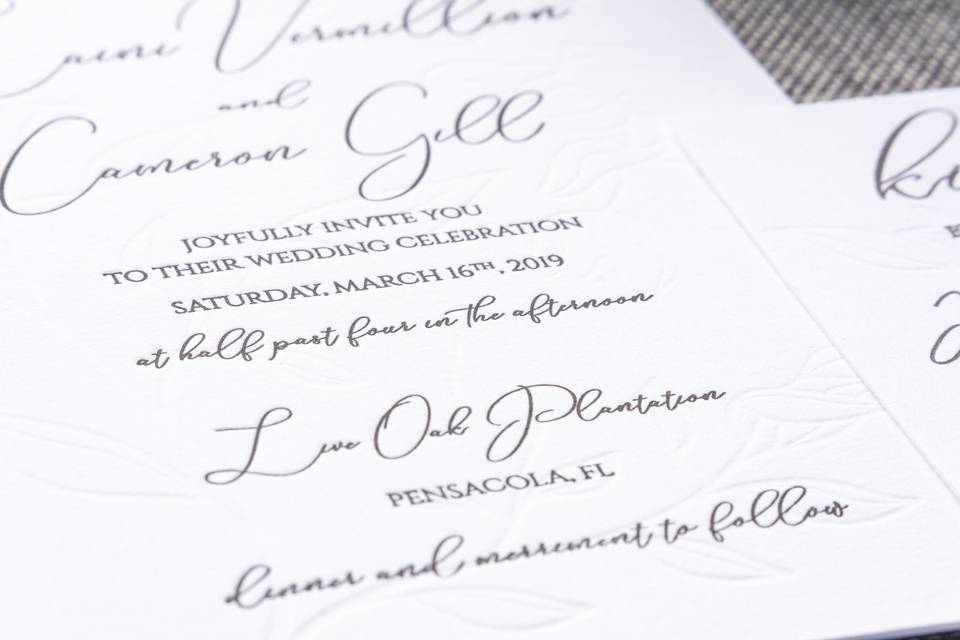 Vermillion
and
Cameron Gill
JOYFULLY INVITE YOU
TO THEIR WEDDING CELEBRATION
SATURDAY, MARCH 16TH, 2019
at half past four in the afternoon
Live Oak Plantation
PENSACOLA, FL
dinner and merriment to follow